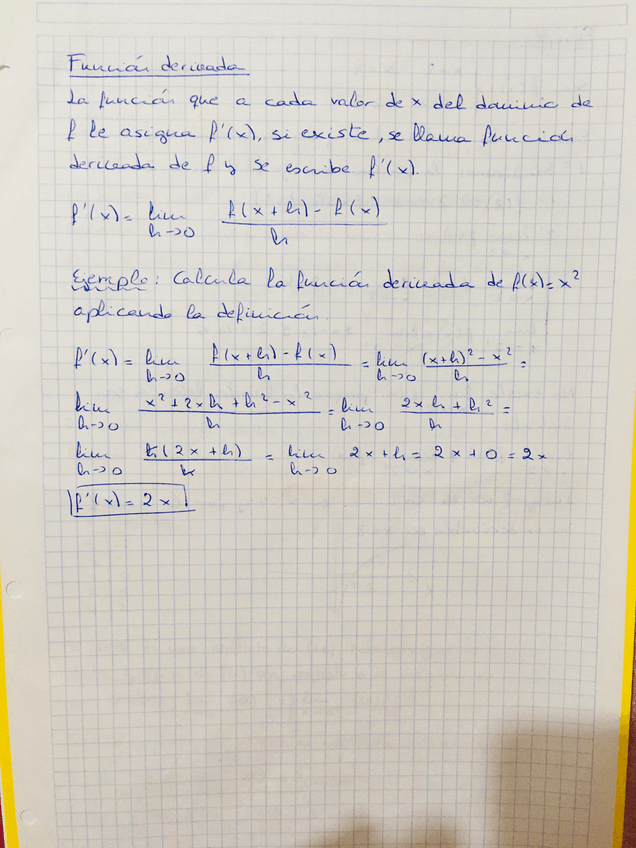 Función derivada
La función que a cada valor de x del dominio de
f le asigna f'(x), si existe, se llama función
derivada de f y se escribe f'(x).
f'(x) = lim h→0 (f(x+h) - f(x))/h
Ejemplo: Calcula la función derivada de f(x) = x²
aplicando la definición
f'(x) = lim h→0 (f(x+h) - f(x))/h = lim h→0 ((x+h)² - x²)/h =
lim h→0 (x² + 2xh + h² - x²)/h = lim h→0 (2xh + h²)/h =
lim h→0 (h(2x + h))/h = lim h→0 2x + h = 2x + 0 = 2x
f'(x) = 2x